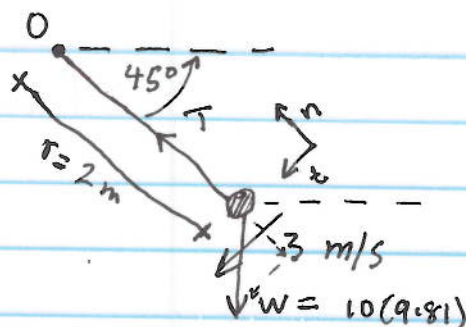 O
45°
T
n
t
r = 2 m
3 m/s
W = 10(9.81)